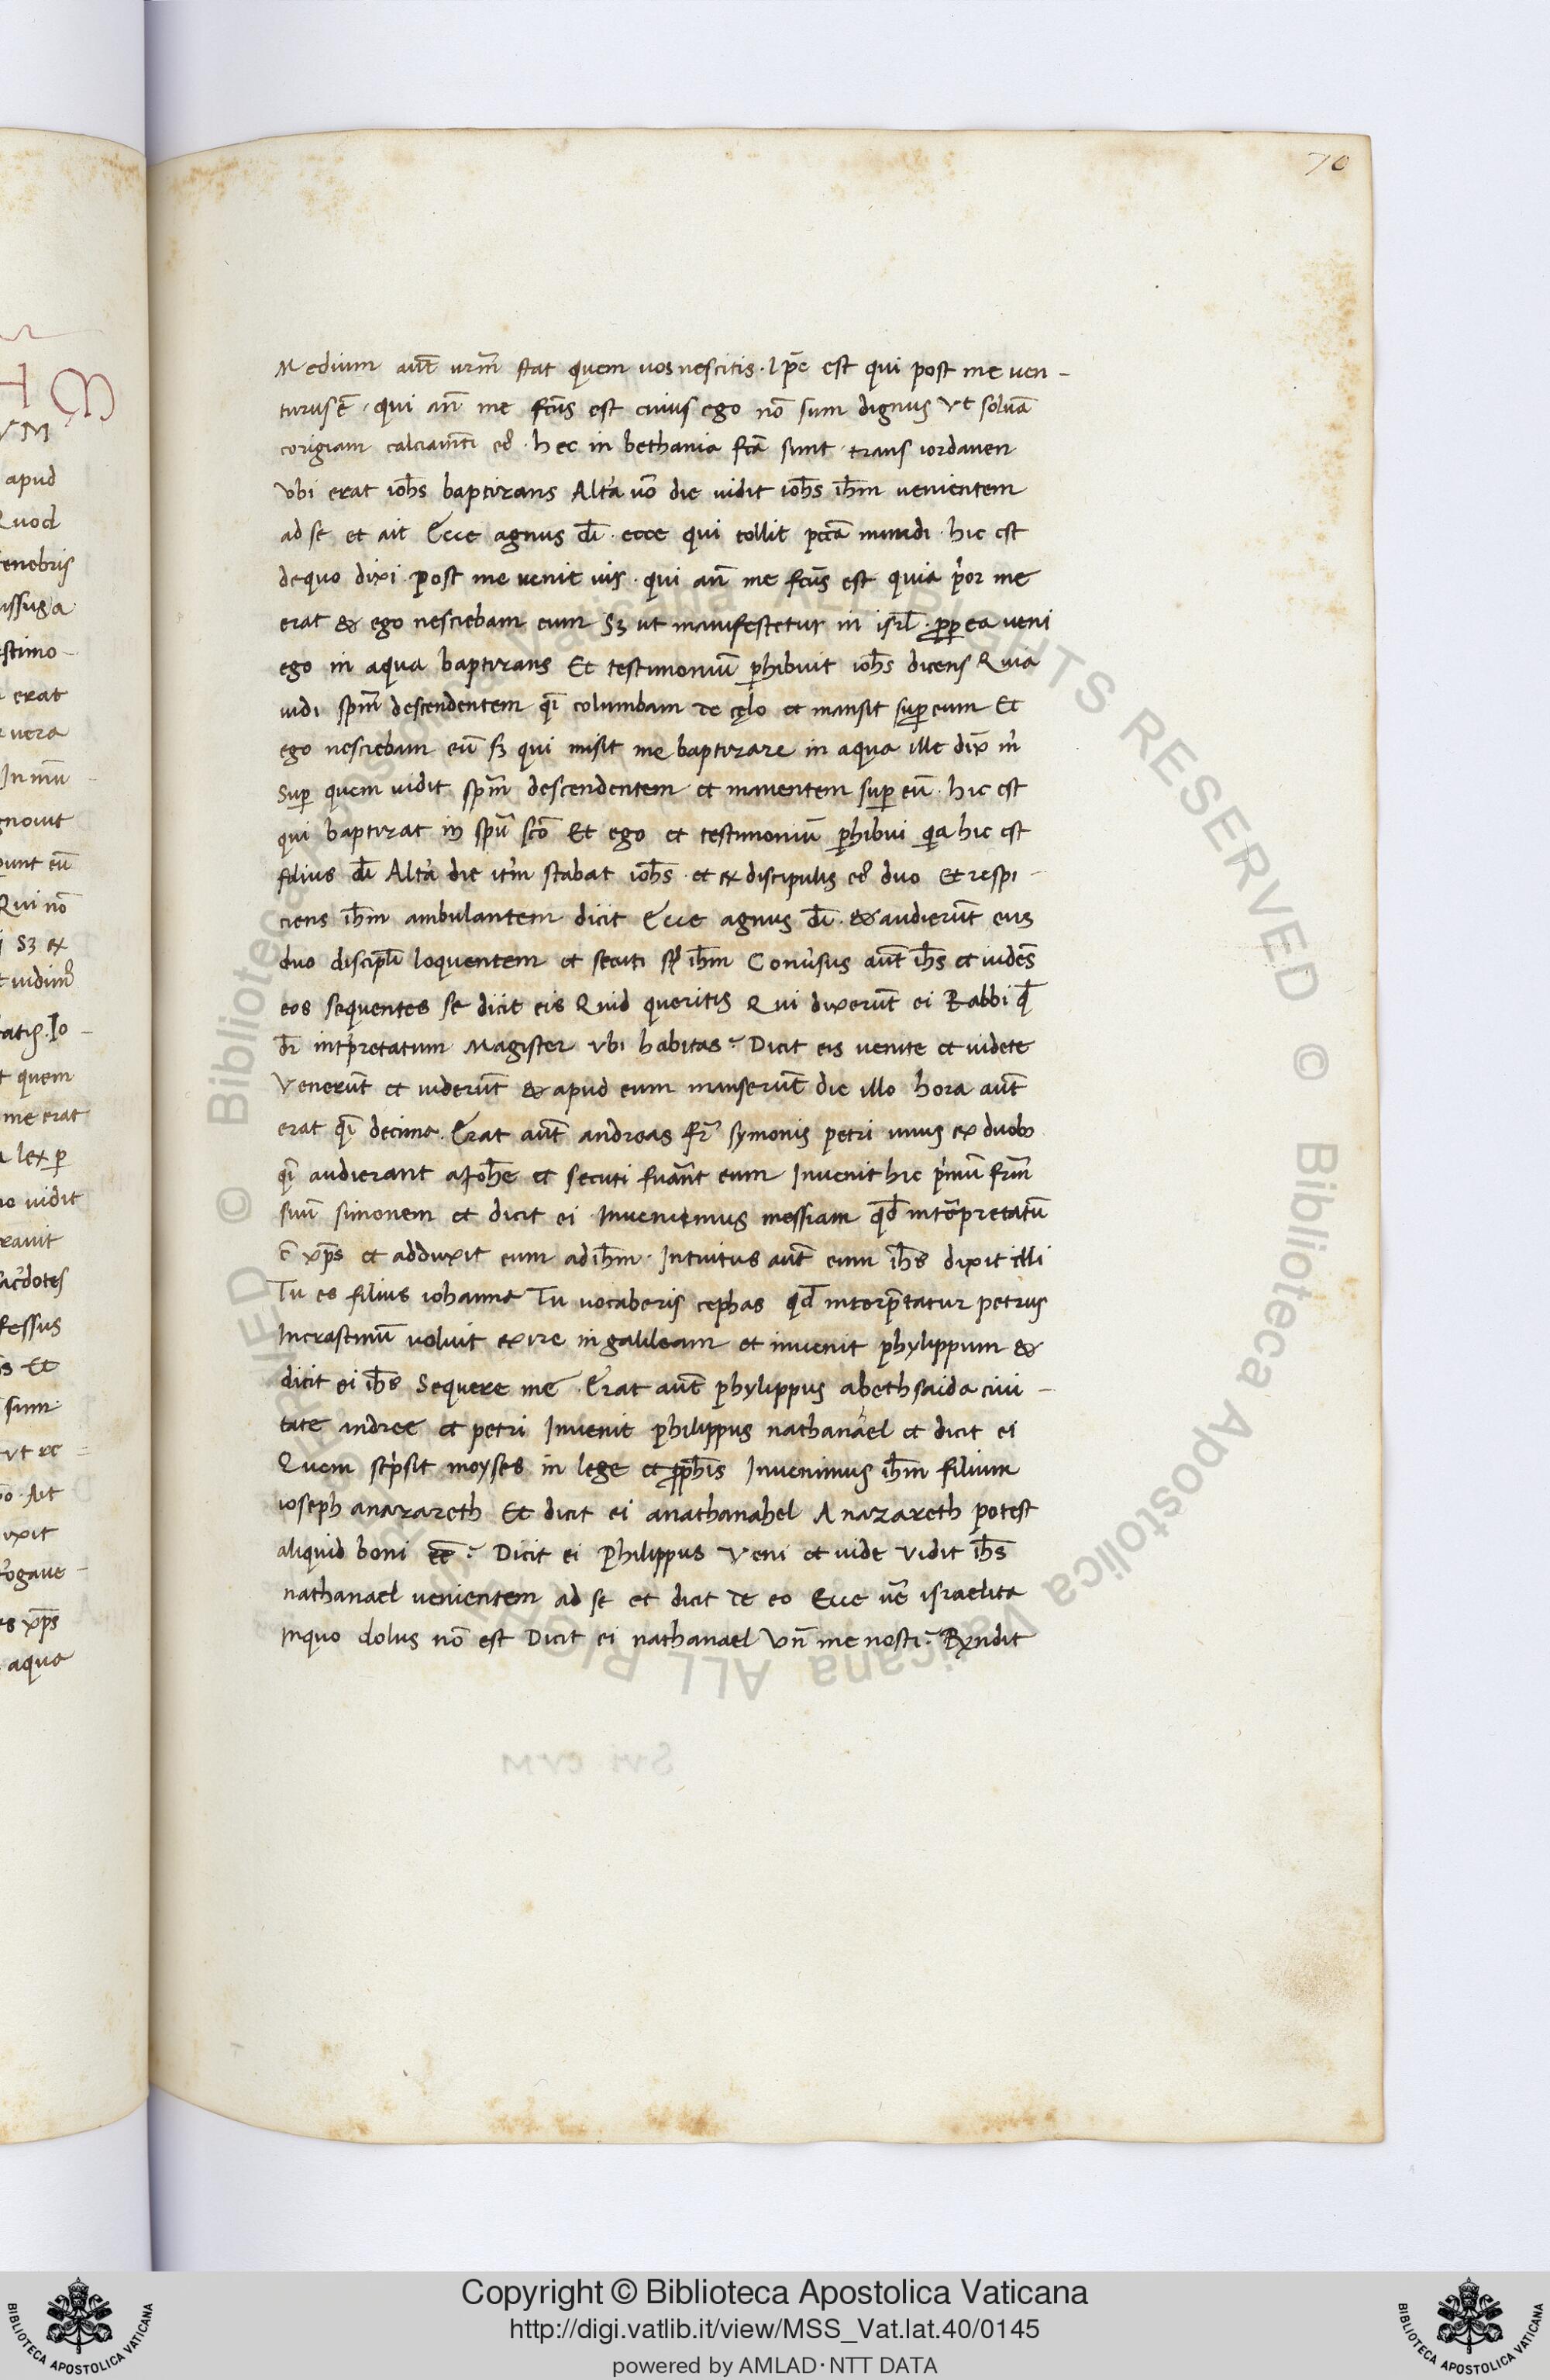 70
Medium aut̄ ur̄m stat quem uos nescitis. Ip̄e est qui post me ven-
turus ē. qui an̄ me fc̄us est cuius ego nō sum dignus vt soluā
corigiam calciam̄ti eꝰ. hec in bethania fcā sunt trans iordanen
vbi erat ioh̄s baptizans Altā uō die uidit ioh̄s ih̄m uenientem
ad se et ait Ecce agnus dī. ecce qui tollit pccā mundi. hic est
de quo dixi. post me uenit uir. qui an̄ me fc̄us est quia p̄or me
erat & ego nesciebam eum Sꝫ ut manifestetur in isrl̄. ꝓpꝑea ueni
ego in aqua baptizans Et testimoniū ꝑhibuit ioh̄s dicens Quia
uidi sp̄m descendentem qī columbam de cęlo et mansit suꝑ eum Et
ego nesciebam eū sꝫ qui misit me baptizare in aqua ille dix̄ m̄
Suꝑ quem uidit sp̄m descendentem et manentem suꝑ eū. hic est
qui baptizat in sp̄u scō Et ego et testimoniū ꝑhibui q̄a hic est
filius dī Altā die it̄m stabat ioh̄s et ex discipulis eꝰ duo Et respi-
ciens ih̄m ambulantem dicit Ecce agnus dī. & audierūt eus
duo discipl̄i loquentem et secuti st̄ ih̄m Conūsus aut̄ ih̄s et uidēs
eos sequentes se dicit eis Quid queritis Qui dixerūt ei Rabbi qđ
dr̄ int̄pretatum Magister vbi habitas? Dicit eis uenite et uidete
Venerūt et uiderūt & apud eum manserūt die illo hora aut̄
erat qī decima. Erat aut̄ andreas fr̄ symonis petri unus ex duobꝰ
qī audierant a Ioh̄e et secuti fuānt eum Inuenit hic p̄mū frm̄
suū simonem et dicit ei Inuenimus messiam qđ int̄rpretatū
ē xp̄s et adduxit eum ad ih̄m. Intuitus aut̄ eum ih̄s dixit illi
Tu es filius iohanna Tu uocaberis cephas qđ interp̄tatur petrus
In crastinū voluit exire in galileam et inuenit phylippum &
dicit ei ih̄s Sequere me. Erat aut̄ phylippus a bethsaida ciui-
tate andree et petri Inuenit philippus nathanael et dicit ei
Quem sc̄psit moyses in lege et ꝓph̄is Inuenimus ih̄m filium
ioseph a nazareth Et dicit ei anathanahel A nazareth potest
aliquid boni ee̅? Dicit ei Philippus Veni et uide Vidit ih̄s
nathanael uenientem ad se et dicit de eo Ecce uē israelita
In quo dolus nō est Dicit ei nathanael Vn̄ me nosti? Rx̄ndit
Sui cum
Copyright © Biblioteca Apostolica Vaticana
http://digi.vatlib.it/view/MSS_Vat.lat.40/0145
powered by AMLAD·NTT DATA